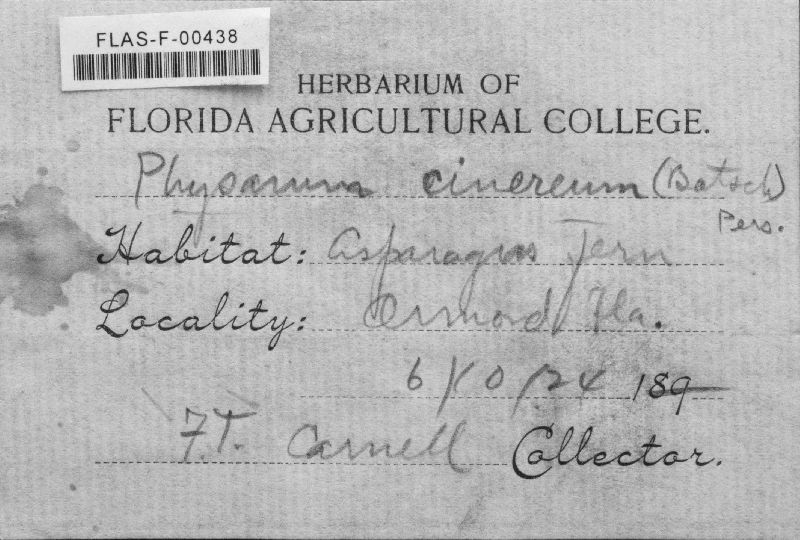 FLAS-F-00438
HERBARIUM OF
FLORIDA AGRICULTURAL COLLEGE.
Physarum cinereum (Batsch)
Pers.
Habitat: Asparagus Fern
Locality: Ormond Fla.
6/10/24 189
F.T. Carnell Collector.